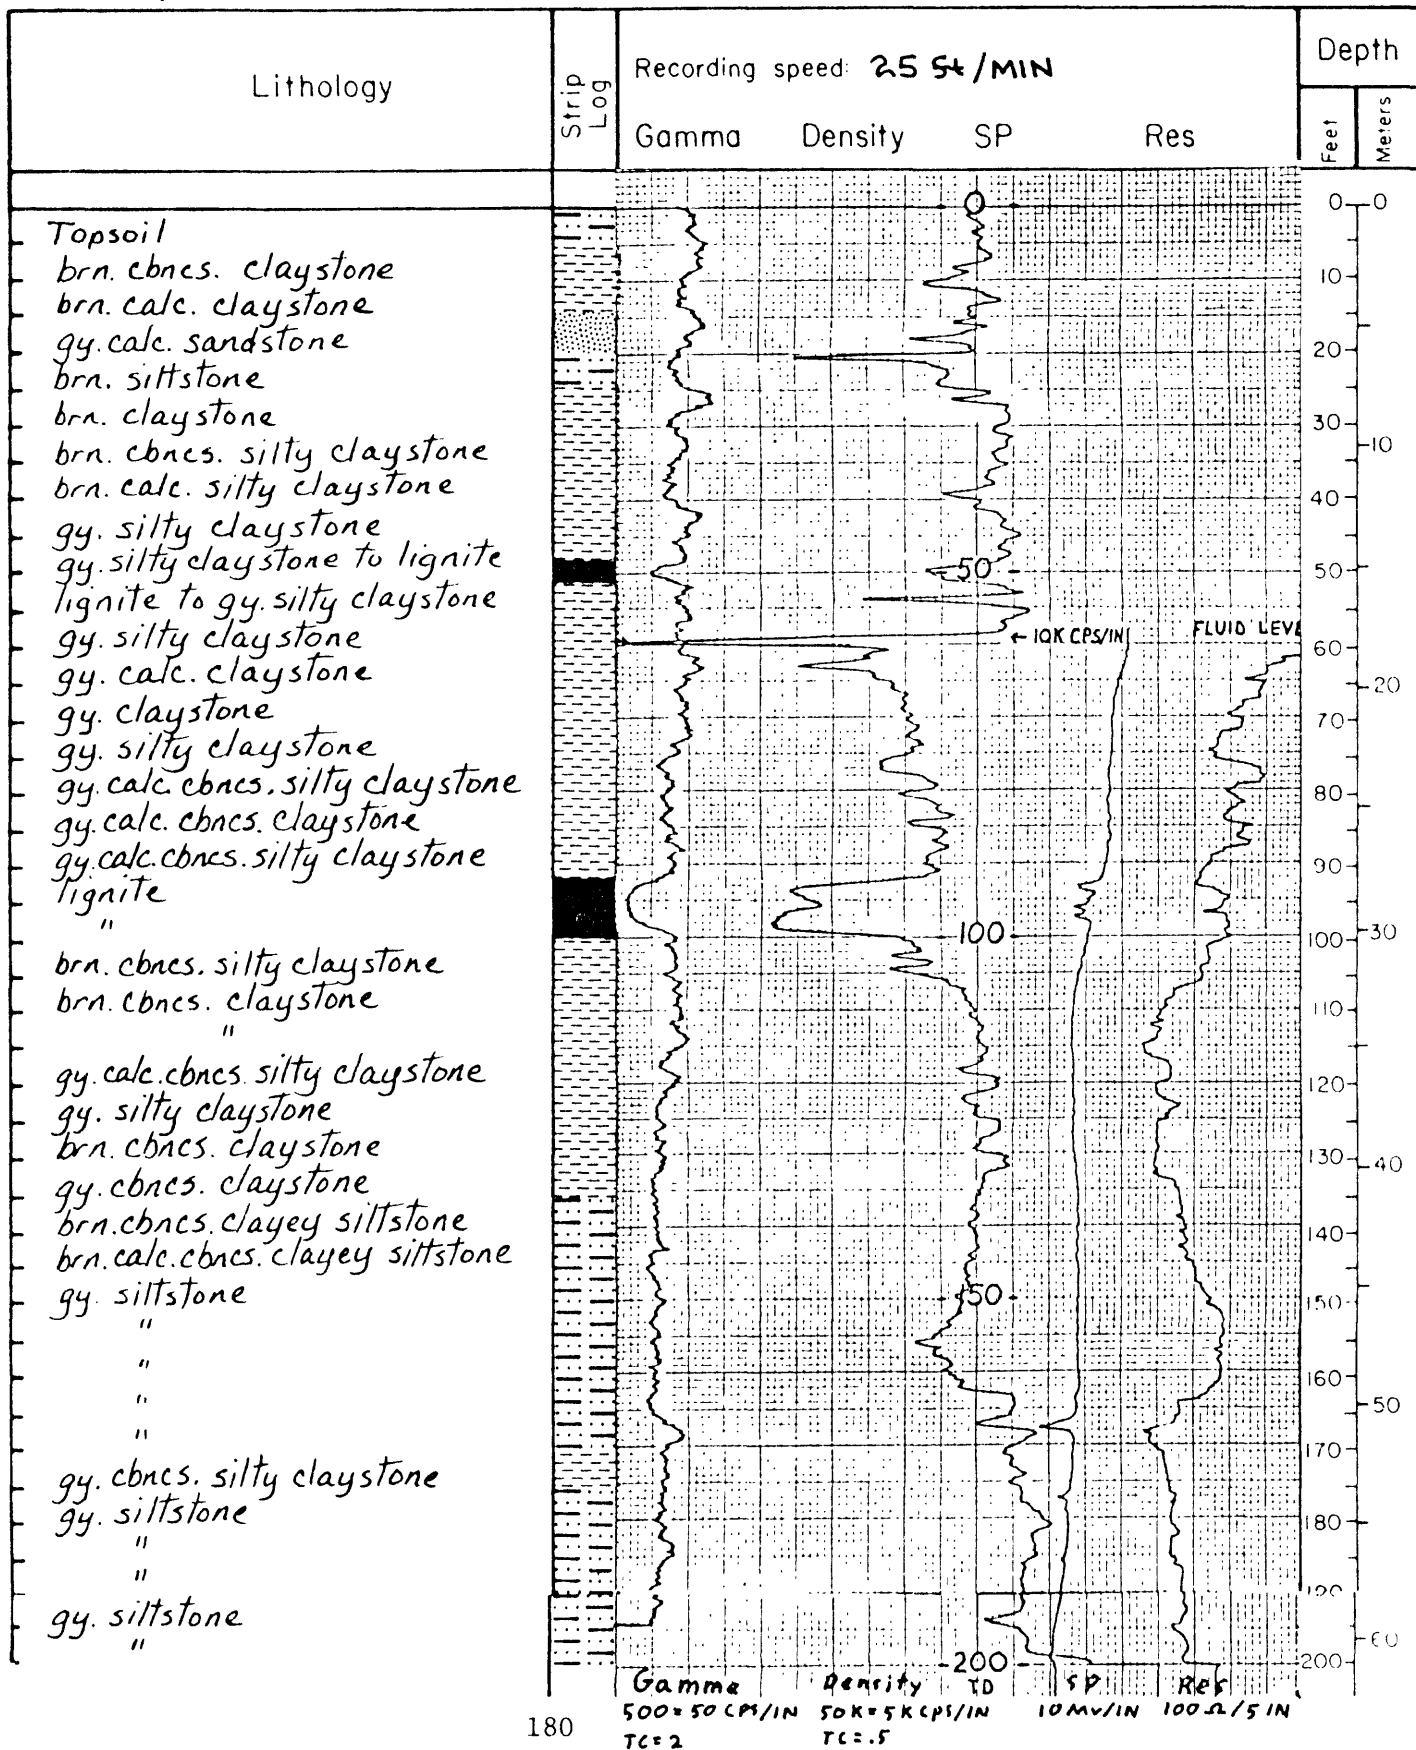 Lithology
Strip Log
Recording speed: 25 ft/MIN
Gamma Density SP Res
Depth
Feet
Meters
Topsoil
brn. cbncs. claystone
brn. calc. claystone
gy. calc. sandstone
brn. siltstone
brn. claystone
brn. cbncs. silty claystone
brn. calc. silty claystone
gy. silty claystone
gy. silty claystone to lignite
lignite to gy. silty claystone
gy. silty claystone
gy. calc. claystone
gy. claystone
gy. silty claystone
gy. calc. cbncs. silty claystone
gy. calc. cbncs. claystone
gy. calc. cbncs. silty claystone
lignite
"
brn. cbncs. silty claystone
brn. cbncs. claystone
"
gy. calc. cbncs. silty claystone
gy. silty claystone
brn. cbncs. claystone
gy. cbncs. claystone
brn. cbncs. clayey siltstone
brn. calc. cbncs. clayey siltstone
gy. siltstone
"
"
"
"
gy. cbncs. silty claystone
gy. siltstone
"
"
gy. siltstone
"
0
50
← 10K CPS/IN
FLUID LEVE
100
150
200
TD
0
10
20
30
40
50
60
70
80
90
100
110
120
130
140
150
160
170
180
190
200
0
10
20
30
40
50
60
Gamma
500 = 50 CPS/IN
TC = 2
Density
50K = 5K CPS/IN
TC = .5
SP
10 Mv/IN
Res
100 Ω/5 IN
180